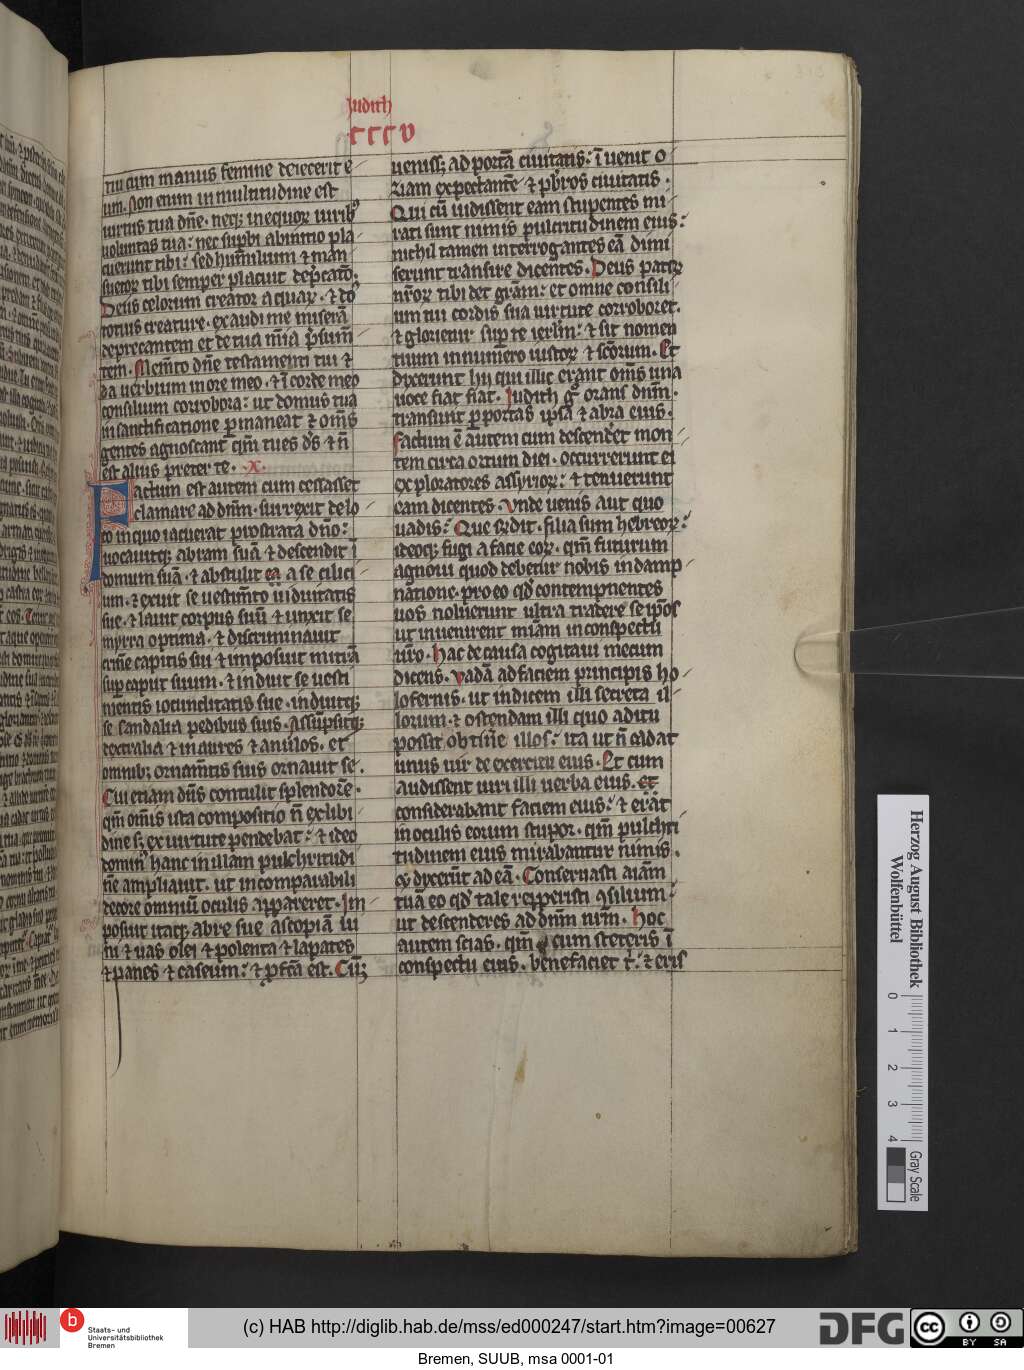 Judith
CCCV
tui cum manus femine deiecerit e
um. Non enim in multitudine est
uirtus tua dn̄e. neq; in equor uirib;
uoluntas tua: nec supbi ab initio pla
cuerunt tibi: sed humilium ⁊ man
suetor tibi semper placuit dep̄catō.
Deus celorum creator aquar. ⁊ dō
totius creature. exaudi me miserā
deprecantem et de tua mīa p̄sum̄
tem. Mem̄to dn̄e testamenti tui ⁊
da uerbum in ore meo. ⁊ ī corde meo
consilium corrobora: ut domus tua
in sanctificatione p̱maneat ⁊ om̄s
gentes agnoscant qm̄ tu es d̄s ⁊ n̄
est alius preter te. .x.
Factum est autem cum cessasset
clamare ad dn̄m. surrexit de lo
co in quo iacuerat prostrata dn̄o:
uocauitq; abram suā ⁊ descendit ī
domum suā. ⁊ abstulit ea a se cilici
um. ⁊ exuit se uestim̄to uiduitatis
sue. ⁊ lauit corpus suū ⁊ unxit se
myrra optima. ⁊ discriminauit
crinē capitis sui ⁊ imposuit mitrā
sup caput suum. ⁊ induit se uesti
mentis iocunditatis sue. induitq;
se sandalia pedibus suis. Assūpsitq;
dextralia ⁊ inaures ⁊ anulos. et
omnib; ornam̄tis suis ornauit se.
Cui etiam dn̄s contulit splendorē.
qm̄ om̄is ista compositio n̄ ex libi
dine s; ex uirtute pendebat: ⁊ ideo
domin' hanc in illam pulchritudi
nē ampliauit. ut incomparabili
decore omniū oculis appareret. Im
posuit itaq; abre sue ascopiā ui
ni ⁊ uas olei ⁊ polenta ⁊ lapates
⁊ panes ⁊ caseum: ⁊ p̱fc̄a est. Cū;
uenis; ad portā ciuitatis: īuenit o
ziam expectantē ⁊ pb̄ros ciuitatis.
Qui cū uidissent eam stupentes mi
rati sunt nimis pulcritudinem eius:
nichil tamen interrogantes eā dimi
serunt transire dicentes. Deus patrꝝ
nr̄oꝝ tibi det grām: et omne consili
um tui cordis sua uirtute corroboret.
⁊ glorietur sup te ierl̄m: ⁊ sit nomen
tuum in numero iustoꝝ ⁊ sc̄orum. Et
dyxerunt hii qui illic erant om̄s una
uoce fiat fiat. Judith g̊ orans dn̄m.
transiuit p̱ portas ip̄sa ⁊ abra eius.
Factum ē autem cum descend'et mon
tem circa ortum diei. occurrerunt ei
exploratores assyrioꝝ: ⁊ tenuerunt
eam dicentes. Vnde uenis aut quo
uadis: Que r̄ndit. filia sum hebreoꝝ:
ideoq; fugi a facie eoꝝ. qm̄ futurum
agnoui quod debetur nobis in damp
natione. pro eo qd̄ contempnentes
uos noluerunt ultro tradere se ip̄os
ut inuenirent mīam in conspectu
ur̄o. Hac de causa cogitaui mecum
dicens. Vadā ad faciem principis ho
lofernis. ut indicem illi secreta il
lorum. ⁊ ostendam illi quo aditu
possit obtinē illos: ita ut n̄ cadat
unus uir de exercitu eius. Et cum
audissent uiri illi uerba eius. et
considerabant faciem eius: ⁊ erāt
in oculis eorum stupor. qm̄ pulchri
tudinem eius mirabantur nimis.
⁊ dyxerūt ad eā. Conseruasti aīam
tuā eo qd̄ tale repperisti ꝯsilium:
ut descenderes ad dn̄m nr̄m. Hoc
autem scias. qm̄ cum steteris ī
conspectu eius. benefaciet t̄: ⁊ eris
Herzog August Bibliothek
Wolfenbüttel
0 1 2 3 4
Gray Scale
b Staats- und
Universitätsbibliothek
Bremen
(c) HAB http://diglib.hab.de/mss/ed000247/start.htm?image=00627
DFG
cc BY SA
Bremen, SUUB, msa 0001-01